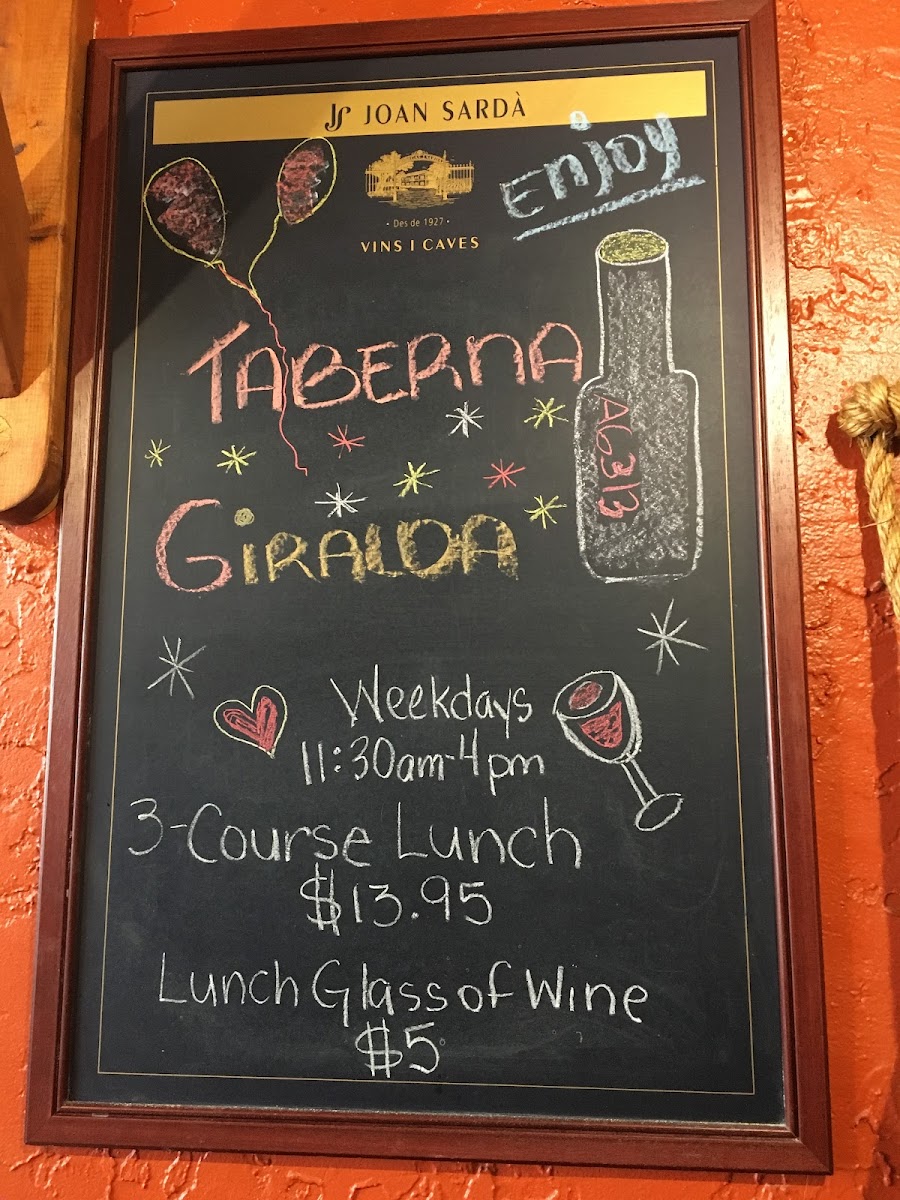 JS JOAN SARDÀ
Enjoy
• Des de 1927 •
VINS I CAVES
TABERNA
GIRALDA
Weekdays
11:30am-4pm
3-Course Lunch
$13.95
Lunch Glass of Wine
$5